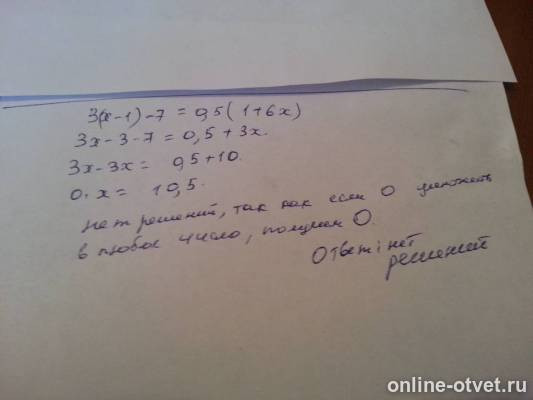 3(x-1)-7 = 0,5(1+6x)
3x-3-7 = 0,5+3x.
3x-3x = 0,5+10.
0·x = 10,5.
нет решений, так как если 0 умножить
в любое число, получим 0.
Ответ: нет
решений
online-otvet.ru